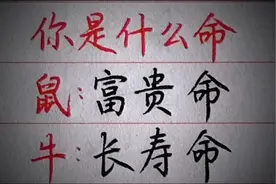 你是什么命
鼠:富贵命
牛:长寿命